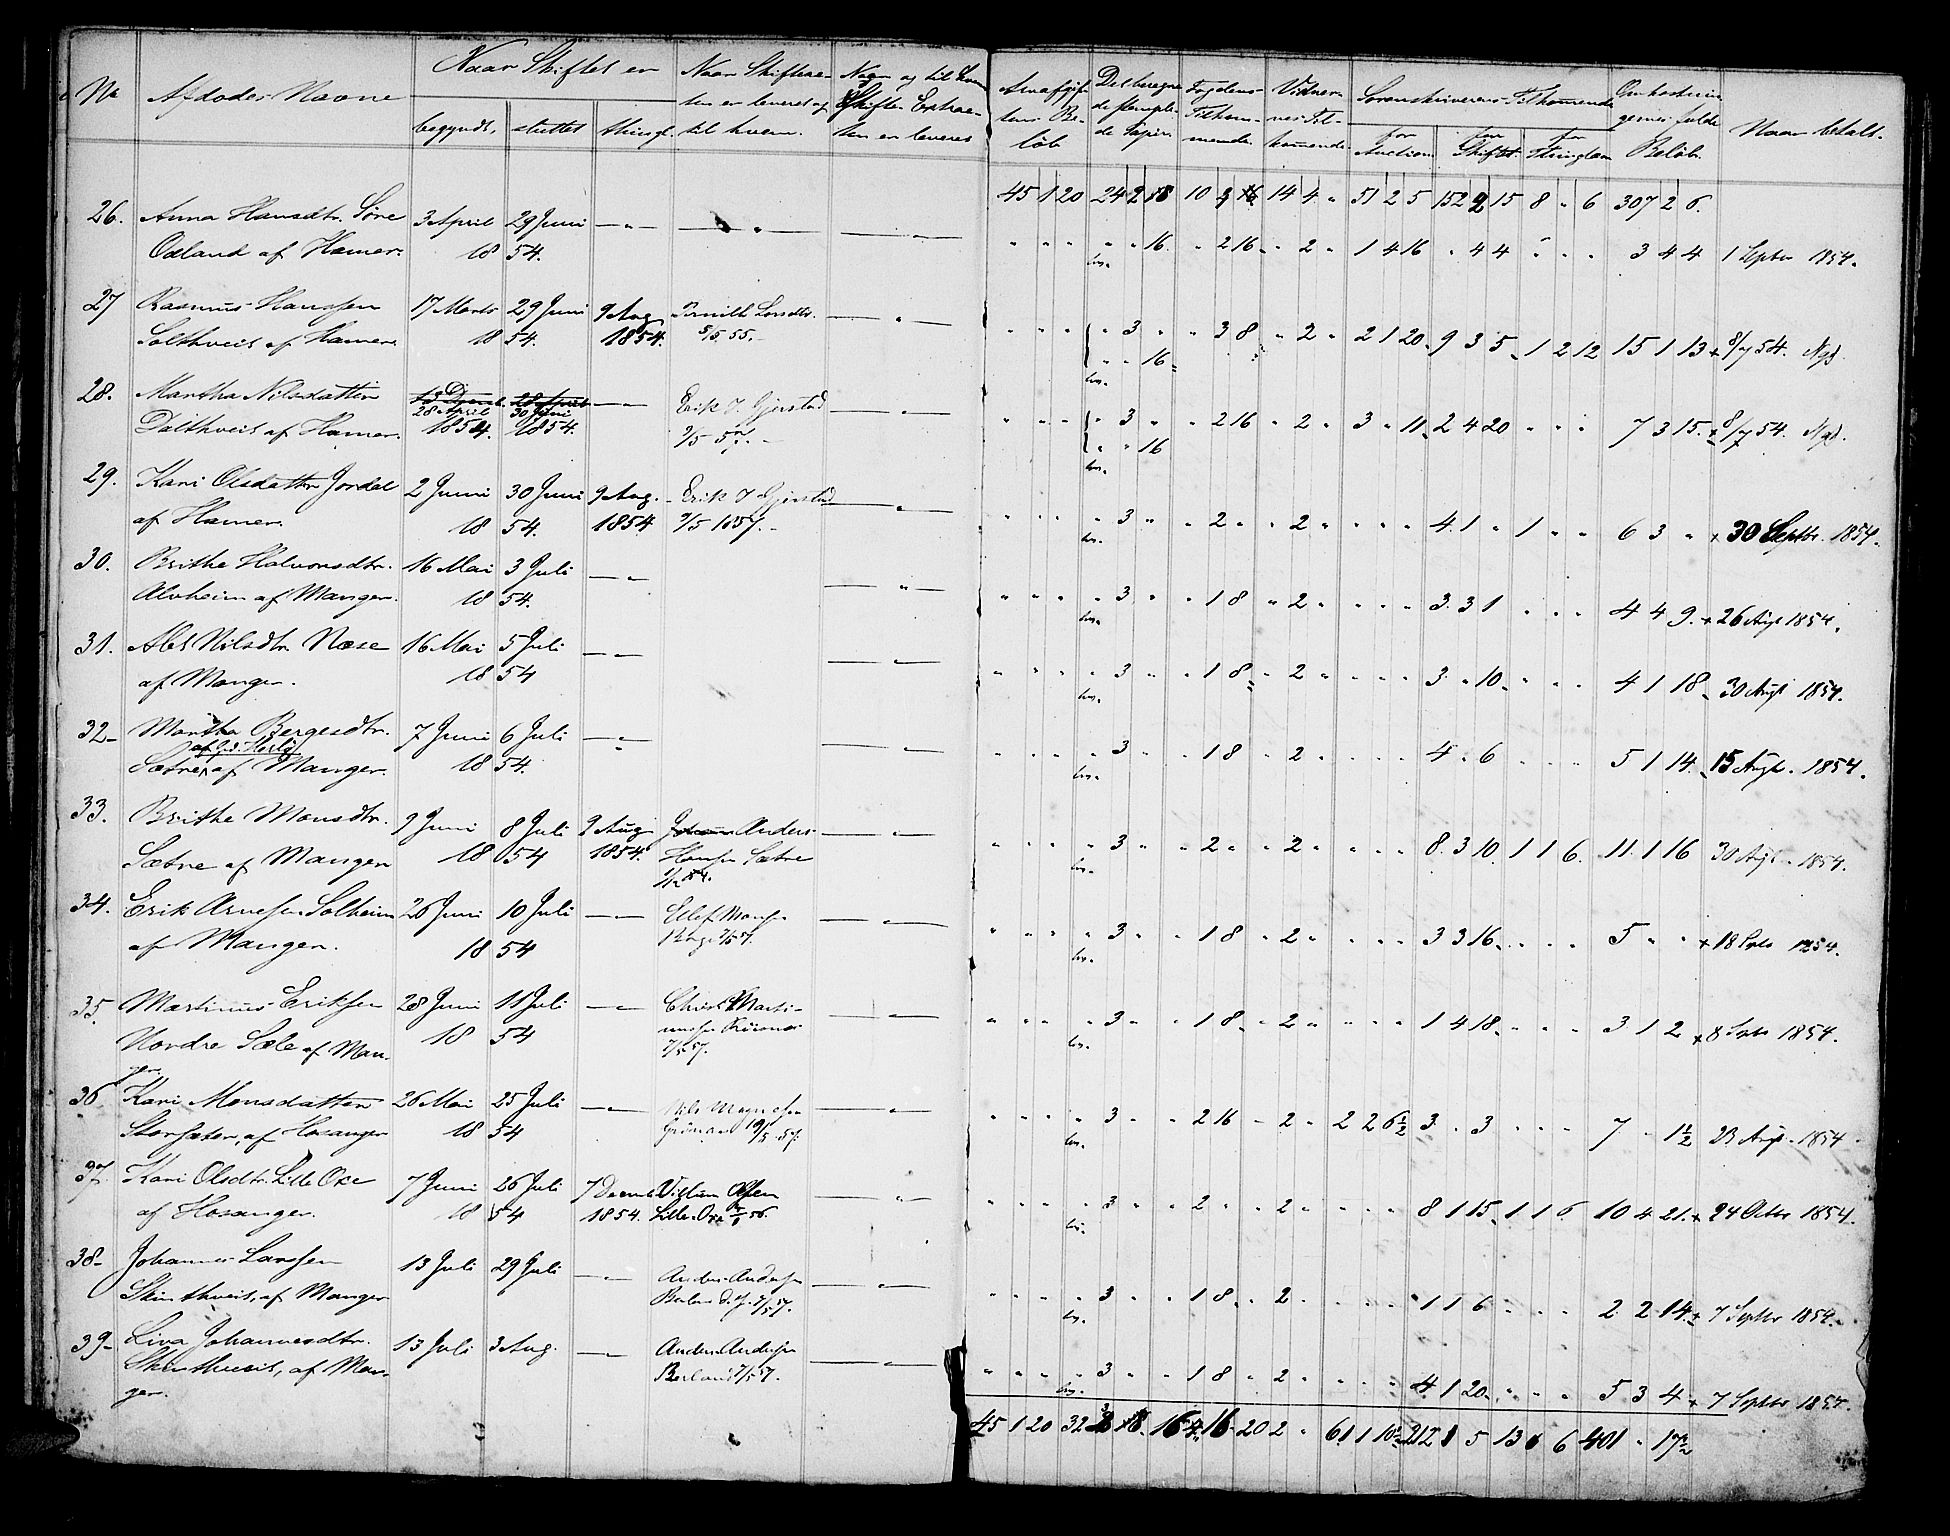 No Afdødes Navne Naar Skiftet er begyndt, sluttet thingl. Naar Skifteac-ten er leveret og til hvem. Naar og til hvem Skifte Extrac-ten er leveret
Arveafgif-tens Be-løb Det beregne-de stemple-de Papir. Fogdens Tilkom-mende. Vidner-nes Til-kommende Sorenskriverens Tilkommende for Auction for Skiftet for Thinglæsn Omkostnin-gernes fulde Beløb. Naar betalt.
45 1 20 24 2 18 10 3 16 14 4 " 51 2 5 152 2 15 8 " 6 307 2 6.
26. Anna Hansdtr. Søre 3 April 29 Juni — " — — " — — " —
Oxland af Hamer. 18 54. " " " " " 16. " 2 16 " 2 " 1 4 16 " 4 4 " " " 3 4 4 1 Septbr 1854.
27 Rasmus Hanssen 17 Marts 29 Juni 9 Aug Pernille Larsdtr. — " —
Solthveit af Hamer 18 54. 1854. 8/5 55. " " " " 3 " " 3 8 " 2 " 2 1 20 9 3 5 1 2 12 15 1 13 + 8/7 54. Ngd.
" " 16
28. Martha Nilsdatter 13 Decmb. 28 April — " — Erik J. Gjerstad — " —
28 April 30 Juni
Dalthveit af Hamer. 1854. 1854. 9/5 57. " " " " 3 " " 2 16 " 2 " 3 " 11 2 4 20 " " " 7 3 15. + 8/7 54. Ngd.
" " 16
29. Kari Olsdatter Jordal 2 Juni 30 Juni 9 Aug. Erik J. Gjerstad — " —
af Hamer. 18 54. 1854 9/5 1857. " " " " 3 " " 2 " " 2 " " " " 4 1 " 1 " " 6 3 " + 30 Septbr. 1854.
30. Brithe Halvorsdtr. 16 Mai 3 Juli — " — — " —
Alvheim af Manger. 18 54. " " " " 3 " " 1 8 " 2 " " " " 3 3 1 " " " 4 4 9. + 26 Augt 1854.
31. Abel Nilsdtr. Næse 16 Mai 5 Juli — " — — " —
af Manger. 18 54 " " " " 3 " " 1 8 " 2 " " " " 3 " 10 " " " 4 1 18 30 Augt 1854.
32 Martha Børgesdtr. 7 Juni 6 Juli — " — — " —
Sætre af Manger. 18 54. " " " " 3 " " 1 8 " 2 " " " " 4 " 6 " " " 5 1 14. 15 Augt. 1854.
33. Brithe Monsdtr. 9 Juni 8 Juli 9 Aug Anders — " —
Sætre af Manger 18 54 1854. Hansen Sætre " " " " 3 " " 2 " " 2 " " " " 8 3 10 1 1 6 11 1 16 30 Augt. 1854.
34. Erik Arnesen Solheim 26 Juni 10 Juli — " — — " —
af Manger. 18 54 " " " " 3 " " 1 8 " 2 " " " " 3 3 16 " " " 5 " " + 18 Septb 1854.
35. Martinus Eriksen 28 Juni 11 Juli — " — Christ. Marti- — " —
Nordre Sæle af Man- 18 54 7/5 57. " " " " 3 " " 1 8 " 2 " " " " 1 4 18 " " " 3 1 2 + 8 Septb 1854.
ger.
36 Kari Monsdatter 26 Mai 25 Juli — " — Nils Magnesen — " —
Storsæter, af Hosanger 18 54 19/5 57. " " " " 3 " " 2 16 " 2 " 2 2 6½ 3 " 3 " " " 7 " 1½ 23 Augt. 1854
37. Kari Olsdtr. Lille Oxe 7 Juni 26 Juli 7 Decmb Villum Olsen — " —
af Hosanger. 18 54 1854. Lille Oxe 56. " " " " 3 " " 2 " " 2 " " " " 8 1 15 1 1 6. 10 4 21. + 24 Octbr 1854.
38 Johannes Larssen 13 Juli 29 Juli — " — Anders Andersen — " —
Skinthveit, af Manger 7/5 57. " " " " 3 " " 1 8 " 2 " " " " 1 1 6 " " " 2 2 14. + 7 Septbr 1854.
39 Siva Johannesdtr. 13 Juli 3 Aug. — " — Anders Andersen — " —
Skinthveit, af Man- Berland 7/5 57. " " " " 3 " " 1 8 " 2 " " " " 4 1 20 " " " 5 3 4 + 7 Septbr 1854.
ger.
45 1 20 32 3 18 16 4 16 20 2 " 61 1 10½ 212 1 5 13 " 6 401 " 17½